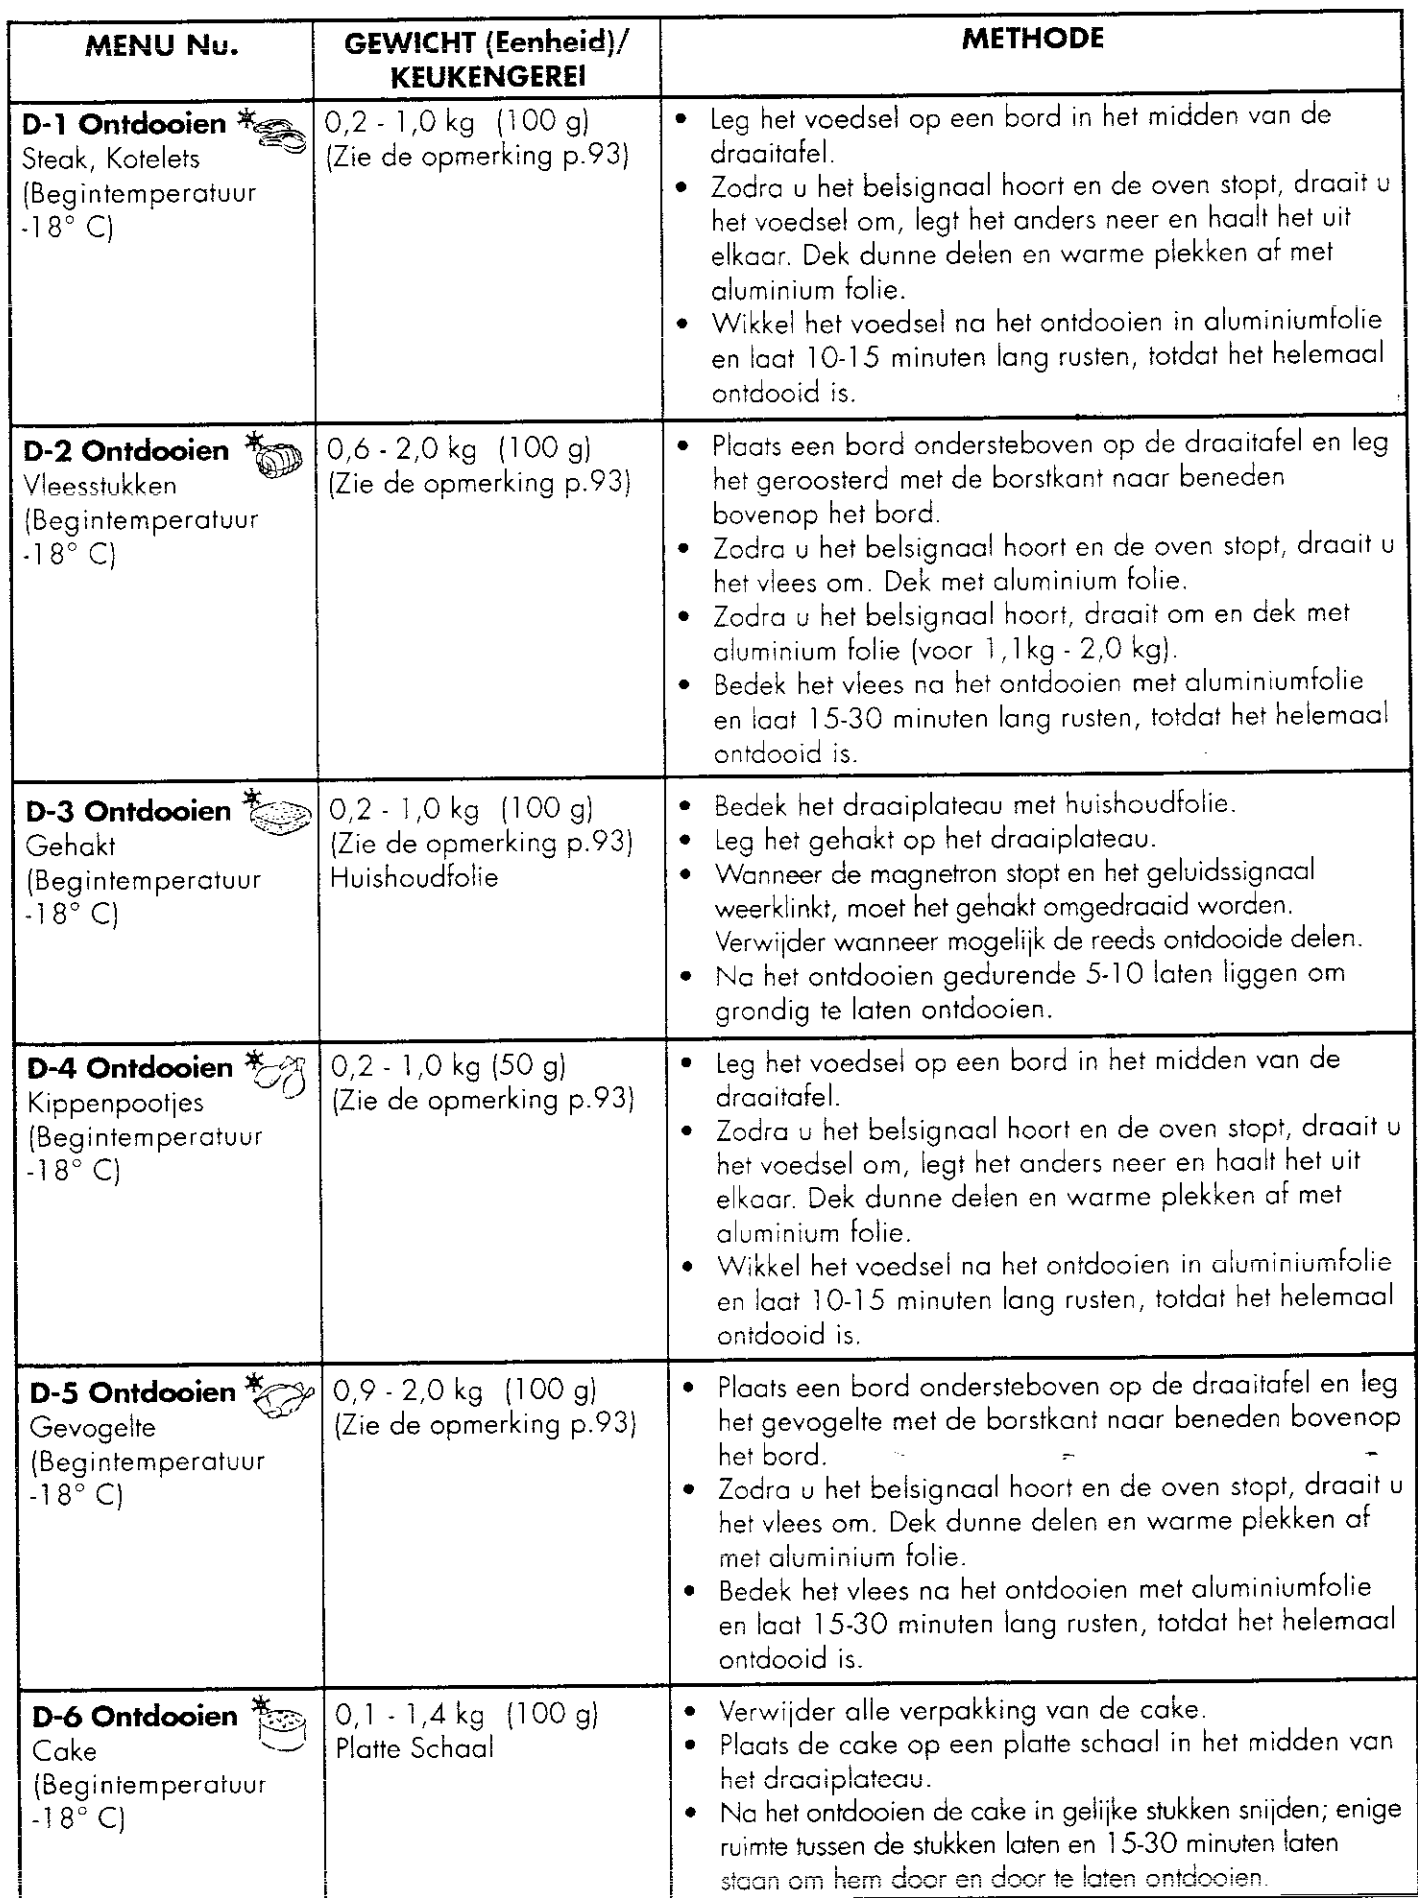 MENU Nu.
GEWICHT (Eenheid)/
KEUKENGEREI
METHODE
D-1 Ontdooien
Steak, Kotelets
(Begintemperatuur
-18° C)
0,2 - 1,0 kg (100 g)
(Zie de opmerking p.93)
• Leg het voedsel op een bord in het midden van de
draaitafel.
• Zodra u het belsignaal hoort en de oven stopt, draait u
het voedsel om, legt het anders neer en haalt het uit
elkaar. Dek dunne delen en warme plekken af met
aluminium folie.
• Wikkel het voedsel na het ontdooien in aluminiumfolie
en laat 10-15 minuten lang rusten, totdat het helemaal
ontdooid is.
D-2 Ontdooien
Vleesstukken
(Begintemperatuur
-18° C)
0,6 - 2,0 kg (100 g)
(Zie de opmerking p.93)
• Plaats een bord ondersteboven op de draaitafel en leg
het geroosterd met de borstkant naar beneden
bovenop het bord.
• Zodra u het belsignaal hoort en de oven stopt, draait u
het vlees om. Dek met aluminium folie.
• Zodra u het belsignaal hoort, draait om en dek met
aluminium folie (voor 1,1kg - 2,0 kg).
• Bedek het vlees na het ontdooien met aluminiumfolie
en laat 15-30 minuten lang rusten, totdat het helemaal
ontdooid is.
D-3 Ontdooien
Gehakt
(Begintemperatuur
-18° C)
0,2 - 1,0 kg (100 g)
(Zie de opmerking p.93)
Huishoudfolie
• Bedek het draaiplateau met huishoudfolie.
• Leg het gehakt op het draaiplateau.
• Wanneer de magnetron stopt en het geluidssignaal
weerklinkt, moet het gehakt omgedraaid worden.
Verwijder wanneer mogelijk de reeds ontdooide delen.
• Na het ontdooien gedurende 5-10 laten liggen om
grondig te laten ontdooien.
D-4 Ontdooien
Kippenpootjes
(Begintemperatuur
-18° C)
0,2 - 1,0 kg (50 g)
(Zie de opmerking p.93)
• Leg het voedsel op een bord in het midden van de
draaitafel.
• Zodra u het belsignaal hoort en de oven stopt, draait u
het voedsel om, legt het anders neer en haalt het uit
elkaar. Dek dunne delen en warme plekken af met
aluminium folie.
• Wikkel het voedsel na het ontdooien in aluminiumfolie
en laat 10-15 minuten lang rusten, totdat het helemaal
ontdooid is.
D-5 Ontdooien
Gevogelte
(Begintemperatuur
-18° C)
0,9 - 2,0 kg (100 g)
(Zie de opmerking p.93)
• Plaats een bord ondersteboven op de draaitafel en leg
het gevogelte met de borstkant naar beneden bovenop
het bord.
• Zodra u het belsignaal hoort en de oven stopt, draait u
het vlees om. Dek dunne delen en warme plekken af
met aluminium folie.
• Bedek het vlees na het ontdooien met aluminiumfolie
en laat 15-30 minuten lang rusten, totdat het helemaal
ontdooid is.
D-6 Ontdooien
Cake
(Begintemperatuur
-18° C)
0,1 - 1,4 kg (100 g)
Platte Schaal
• Verwijder alle verpakking van de cake.
• Plaats de cake op een platte schaal in het midden van
het draaiplateau.
• Na het ontdooien de cake in gelijke stukken snijden; enige
ruimte tussen de stukken laten en 15-30 minuten laten
staan om hem door en door te laten ontdooien.